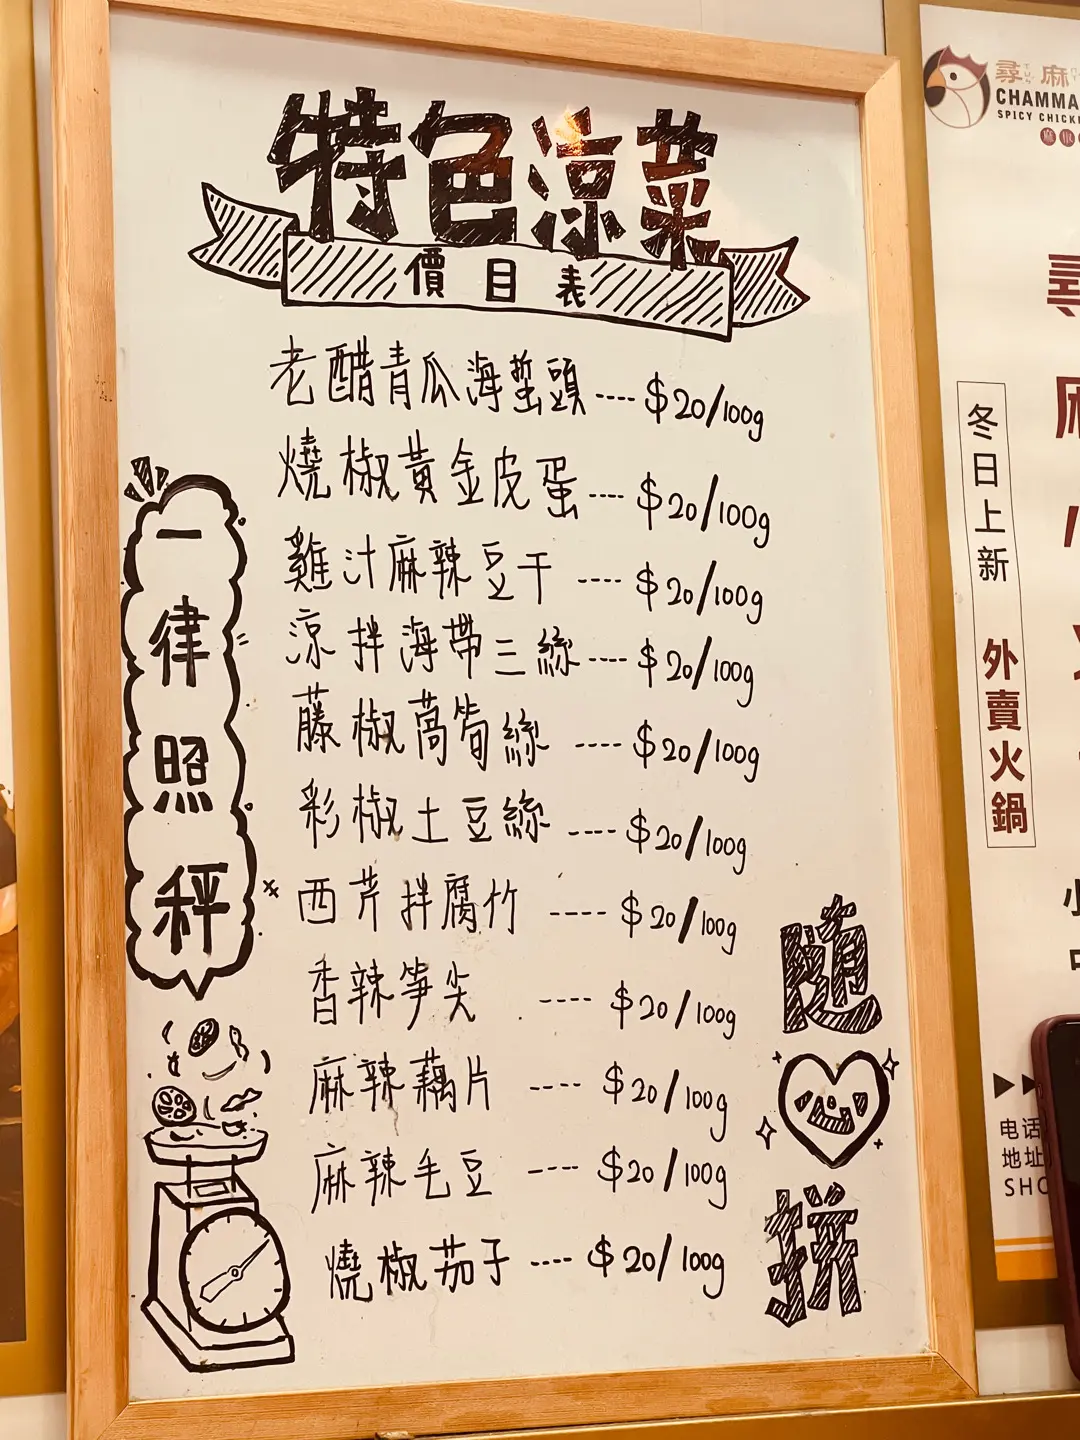 特色涼菜
價目表
老醋青瓜海蜇頭----$20/100g
燒椒黃金皮蛋----$20/100g
雞汁麻辣豆干----$20/100g
涼拌海帶三絲----$20/100g
藤椒萵筍絲----$20/100g
彩椒土豆絲----$20/100g
西芹拌腐竹----$20/100g
香辣笋尖----$20/100g
麻辣藕片----$20/100g
麻辣毛豆----$20/100g
燒椒茄子----$20/100g
一律照秤
随心拼
尋麻
CHAMMA
SPICY CHICK
冬日上新 外賣火鍋
电话
地址